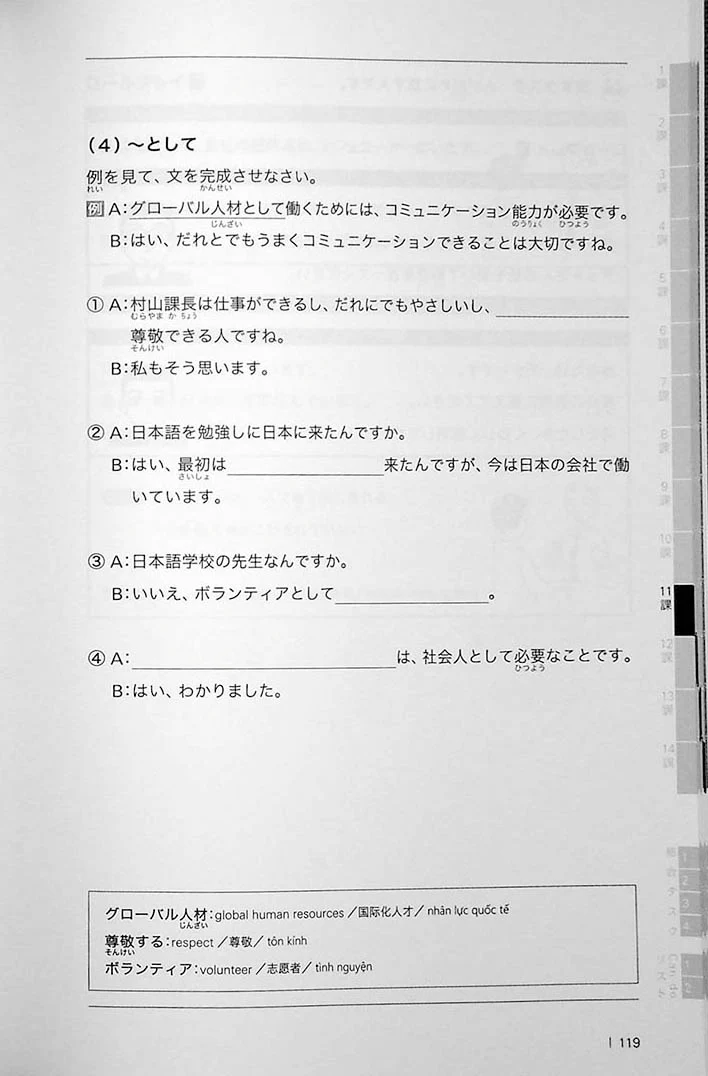 (4)～として
例を見て、文を完成させなさい。
れい かんせい
例 A：グローバル人材として働くためには、コミュニケーション能力が必要です。
じんざい のうりょく ひつよう
B：はい、だれとでもうまくコミュニケーションできることは大切ですね。
① A：村山課長は仕事ができるし、だれにでもやさしいし、
むらやま か ちょう
尊敬できる人ですね。
そんけい
B：私もそう思います。
② A：日本語を勉強しに日本に来たんですか。
B：はい、最初は 来たんですが、今は日本の会社で働
さいしょ
いています。
③ A：日本語学校の先生なんですか。
B：いいえ、ボランティアとして 。
④ A： は、社会人として必要なことです。
ひつよう
B：はい、わかりました。
グローバル人材：global human resources／国际化人才／nhân lực quốc tế
じんざい
尊敬する：respect／尊敬／tôn kính
そんけい
ボランティア：volunteer／志愿者／tình nguyện
119
1
課
2
課
3
課
4
課
5
課
6
課
7
課
8
課
9
課
10
課
11
課
12
課
13
課
14
課
総合タスク
1
2
3
4
1
2